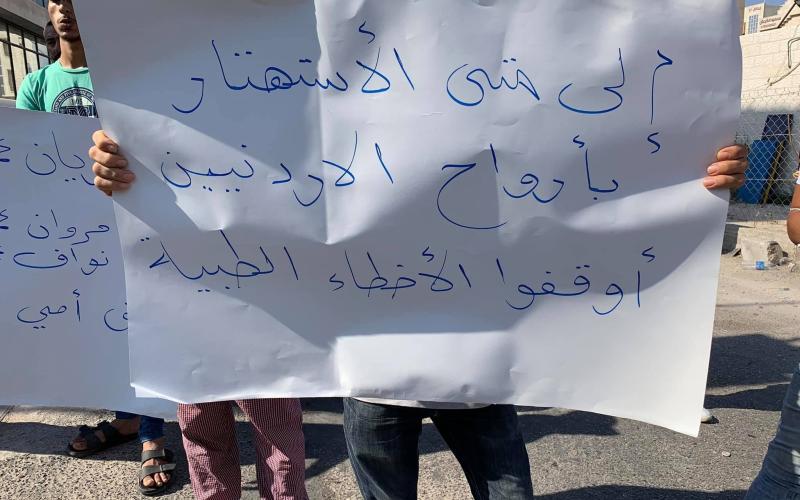 م لى متى الأستهتار
بأرواح الاردنيين
أوقفوا الأخطاء الطبية
ريان
مروان
نواف
أمي